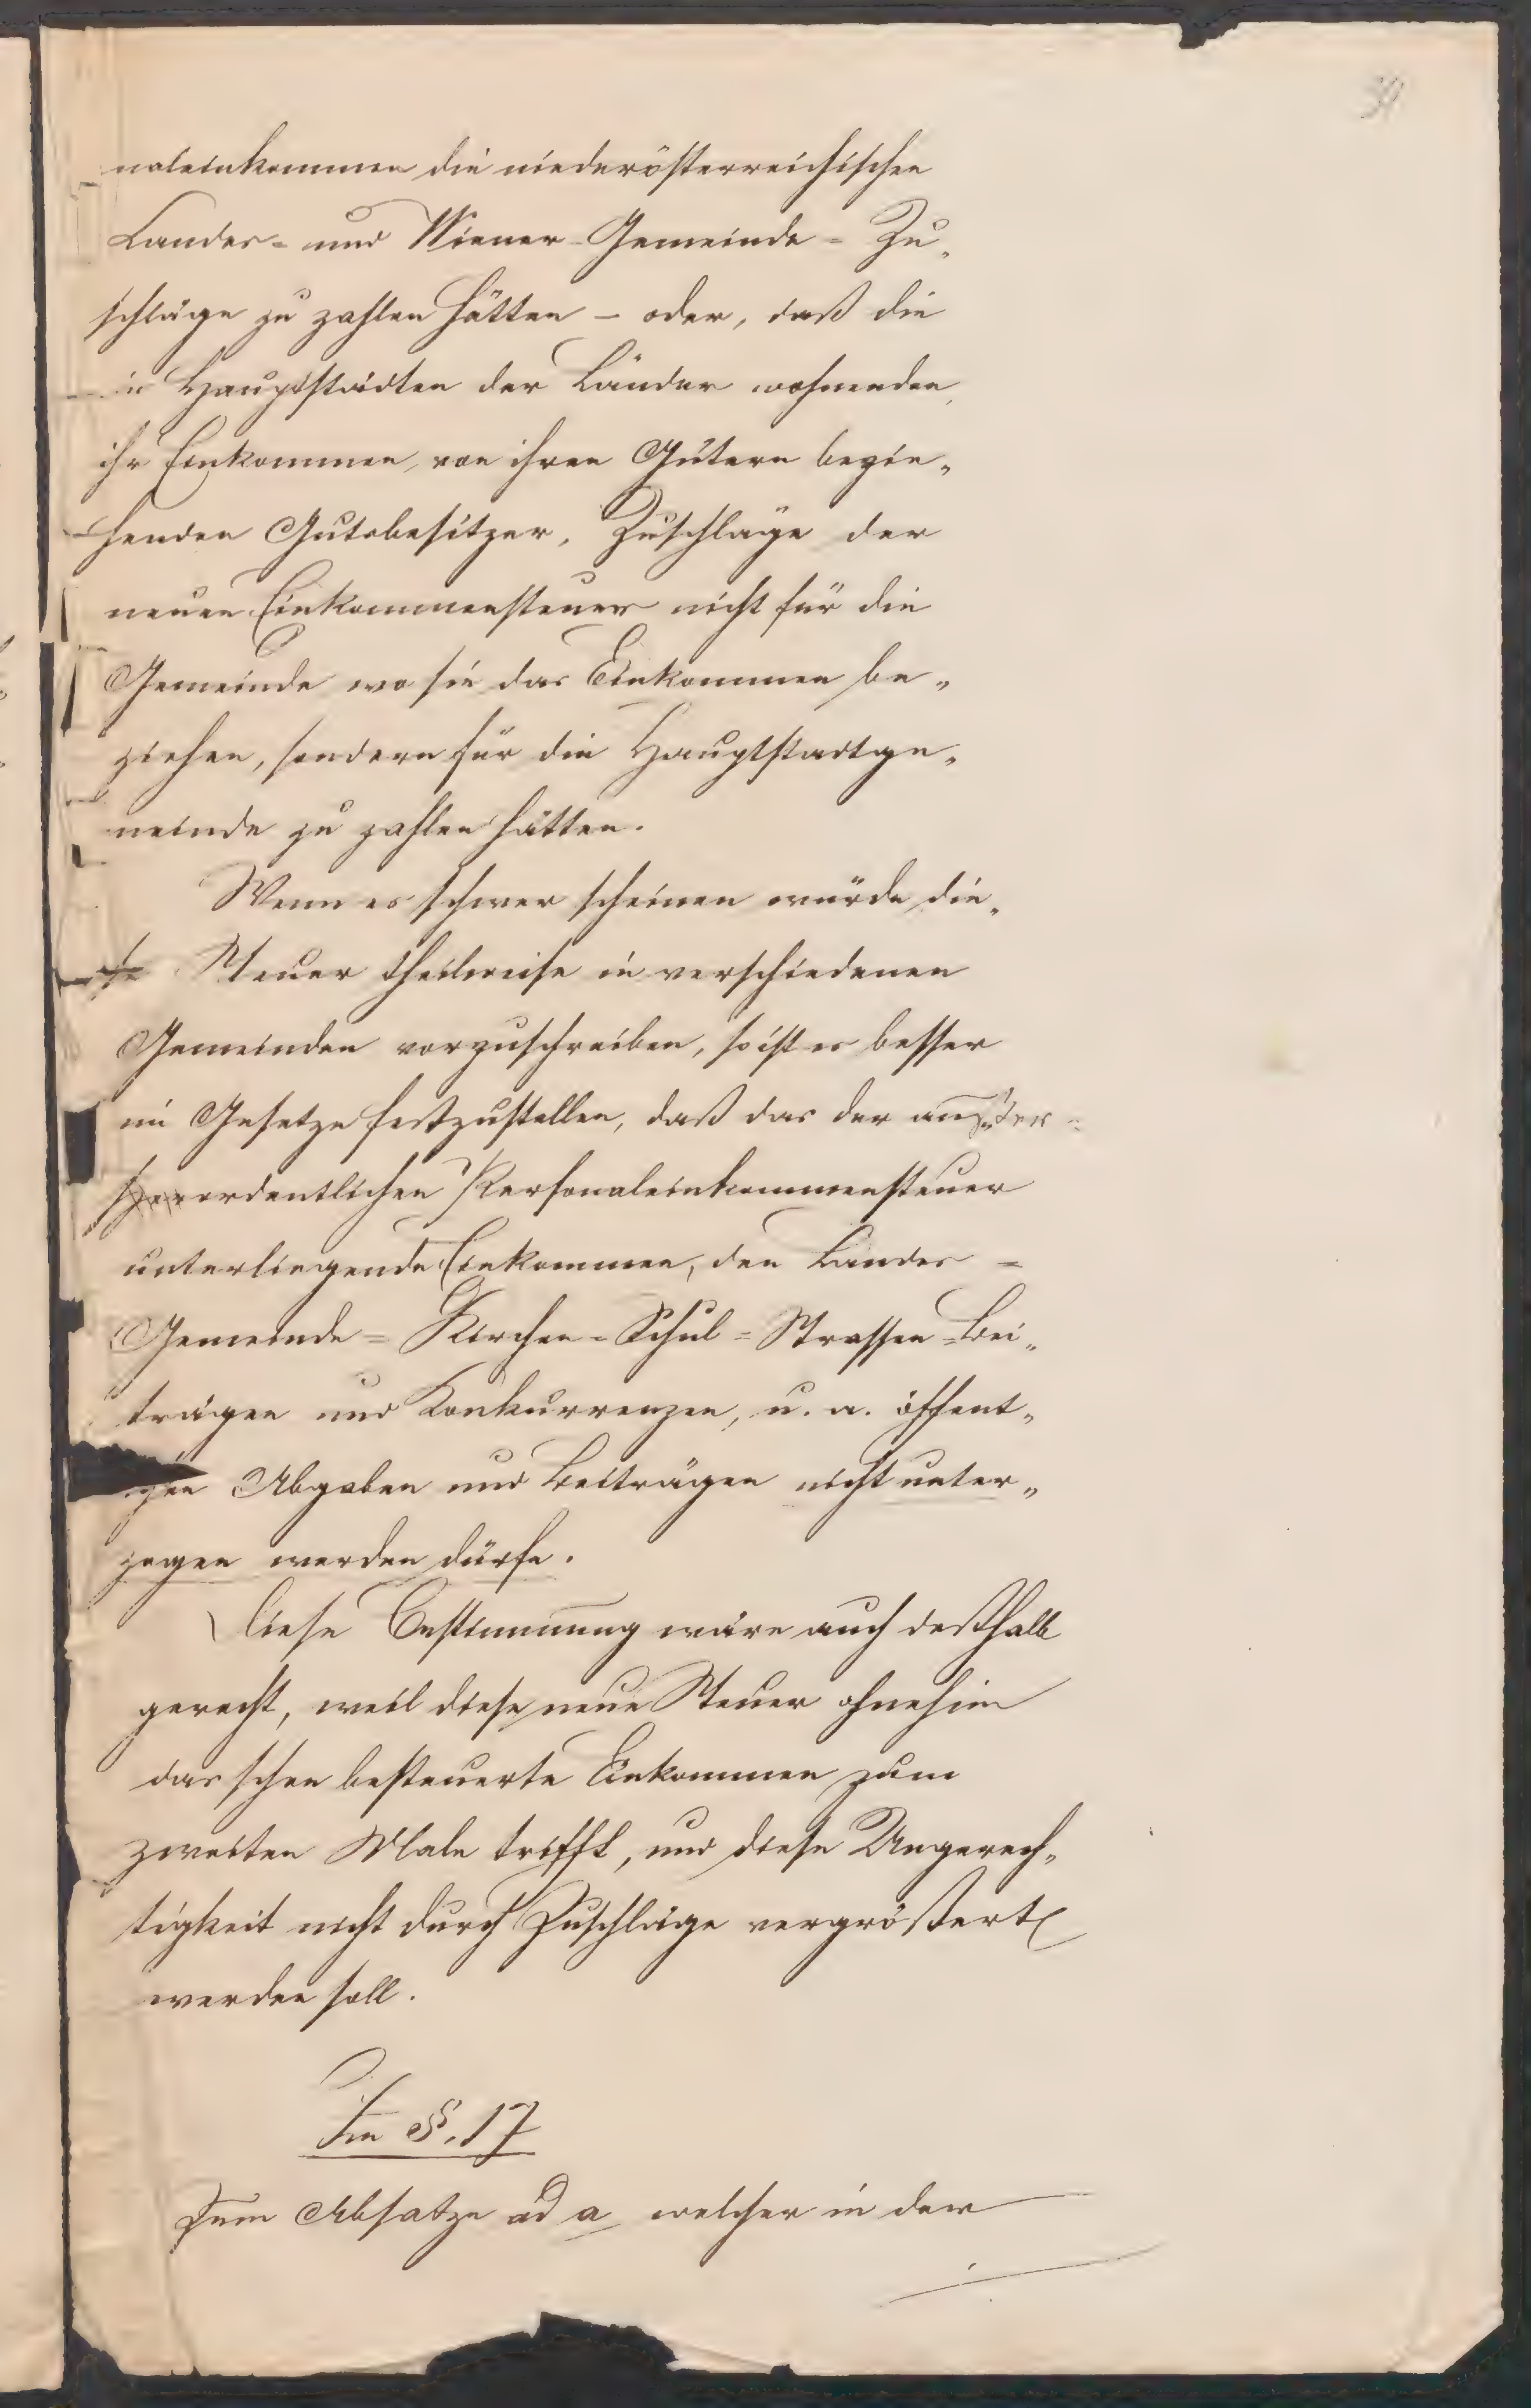 39
naleinkommen die niederösterreichischen
Landes- und Wiener-Gemeinde-Zu„
schläge zu zahlen hätten – oder, daß die
in Hauptstädten der Länder wohnenden,
ihr Einkommen, von ihren Gütern bezie„
henden Gutsbesitzer, Zuschläge der
neuen Einkommensteuer nicht für die
Gemeinde wo sie das Einkommen be„
ziehen, sondern für die Hauptstadtge„
meinde zu zahlen hätten.
Wenn es schwer scheinen würde die„
se Steuer theilweise in verschiedenen
Gemeinden vorzuschreiben, so ist es besser
im Gesetze festzustellen, daß das der außer-
ordentlichen Personaleinkommensteuer
unterliegende Einkommen, den Landes-
Gemeinde-Kirchen-Schul-Strassen-Bei„
trägen und Konkurrenzen, u. a. öffent„
chen Abgaben und Beiträgen nicht unter„
zogen werden dürfe.
Diese Bestimmung wäre auch desthalb
gerecht, weil diese neue Steuer ohnehin
das schon besteuerte Einkommen zum
zweiten Male trifft, und diese Ungerech„
tigkeit nicht durch Zuschläge vergrößert
werden soll.
Im §. 17
Zum Absatze ad a welcher in der